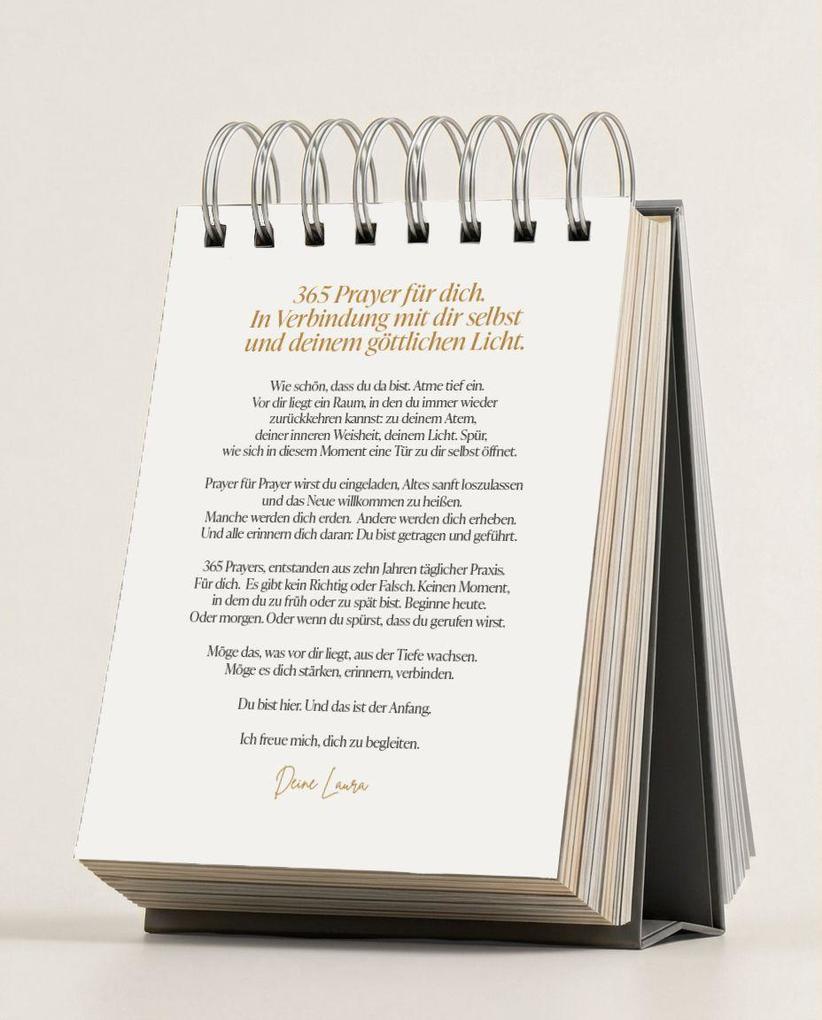 365 Prayer für dich.
In Verbindung mit dir selbst
und deinem göttlichen Licht.
Wie schön, dass du da bist. Atme tief ein.
Vor dir liegt ein Raum, in den du immer wieder
zurückkehren kannst: zu deinem Atem,
deiner inneren Weisheit, deinem Licht. Spür,
wie sich in diesem Moment eine Tür zu dir selbst öffnet.
Prayer für Prayer wirst du eingeladen, Altes sanft loszulassen
und das Neue willkommen zu heißen.
Manche werden dich erden. Andere werden dich erheben.
Und alle erinnern dich daran: Du bist getragen und geführt.
365 Prayers, entstanden aus zehn Jahren täglicher Praxis.
Für dich. Es gibt kein Richtig oder Falsch. Keinen Moment,
in dem du zu früh oder zu spät bist. Beginne heute.
Oder morgen. Oder wenn du spürst, dass du gerufen wirst.
Möge das, was vor dir liegt, aus der Tiefe wachsen.
Möge es dich stärken, erinnern, verbinden.
Du bist hier. Und das ist der Anfang.
Ich freue mich, dich zu begleiten.
Deine Laura